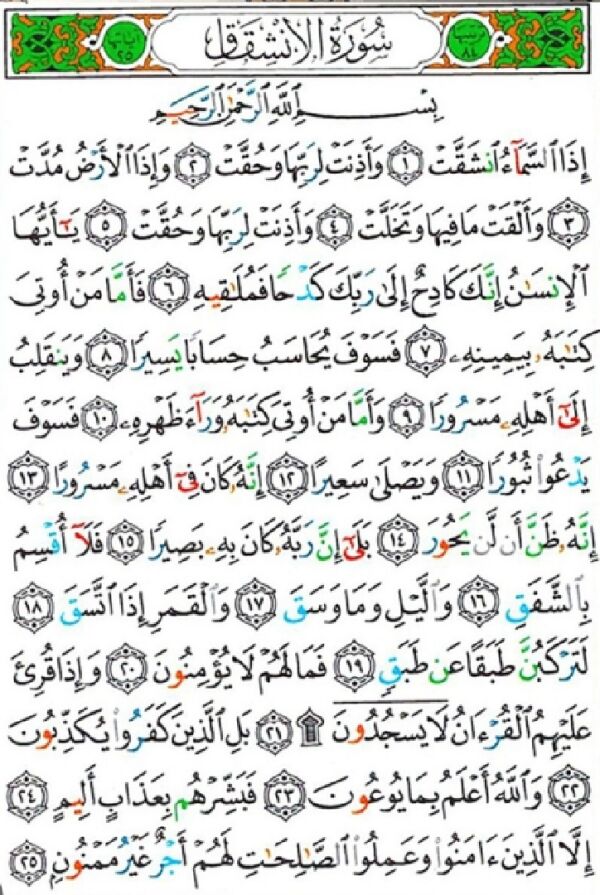 سُورَةُ الِانْشِقَاقِ
بِسْمِ ٱللَّهِ ٱلرَّحْمَٰنِ ٱلرَّحِيمِ
إِذَا ٱلسَّمَآءُ ٱنشَقَّتْ ١ وَأَذِنَتْ لِرَبِّهَا وَحُقَّتْ ٢ وَإِذَا ٱلْأَرْضُ مُدَّتْ
٣ وَأَلْقَتْ مَا فِيهَا وَتَخَلَّتْ ٤ وَأَذِنَتْ لِرَبِّهَا وَحُقَّتْ ٥ يَٰٓأَيُّهَا
ٱلْإِنسَٰنُ إِنَّكَ كَادِحٌ إِلَىٰ رَبِّكَ كَدْحًا فَمُلَٰقِيهِ ٦ فَأَمَّا مَنْ أُوتِىَ
كِتَٰبَهُۥ بِيَمِينِهِۦ ٧ فَسَوْفَ يُحَاسَبُ حِسَابًا يَسِيرًا ٨ وَيَنقَلِبُ
إِلَىٰٓ أَهْلِهِۦ مَسْرُورًا ٩ وَأَمَّا مَنْ أُوتِىَ كِتَٰبَهُۥ وَرَآءَ ظَهْرِهِۦ ١٠ فَسَوْفَ
يَدْعُوا۟ ثُبُورًا ١١ وَيَصْلَىٰ سَعِيرًا ١٢ إِنَّهُۥ كَانَ فِىٓ أَهْلِهِۦ مَسْرُورًا ١٣
إِنَّهُۥ ظَنَّ أَن لَّن يَحُورَ ١٤ بَلَىٰٓ إِنَّ رَبَّهُۥ كَانَ بِهِۦ بَصِيرًا ١٥ فَلَآ أُقْسِمُ
بِٱلشَّفَقِ ١٦ وَٱلَّيْلِ وَمَا وَسَقَ ١٧ وَٱلْقَمَرِ إِذَا ٱتَّسَقَ ١٨
لَتَرْكَبُنَّ طَبَقًا عَن طَبَقٍ ١٩ فَمَا لَهُمْ لَا يُؤْمِنُونَ ٢٠ وَإِذَا قُرِئَ
عَلَيْهِمُ ٱلْقُرْءَانُ لَا يَسْجُدُونَ ۩ ٢١ بَلِ ٱلَّذِينَ كَفَرُوا۟ يُكَذِّبُونَ
٢٢ وَٱللَّهُ أَعْلَمُ بِمَا يُوعُونَ ٢٣ فَبَشِّرْهُم بِعَذَابٍ أَلِيمٍ ٢٤
إِلَّا ٱلَّذِينَ ءَامَنُوا۟ وَعَمِلُوا۟ ٱلصَّٰلِحَٰتِ لَهُمْ أَجْرٌ غَيْرُ مَمْنُونٍۭ ٢٥